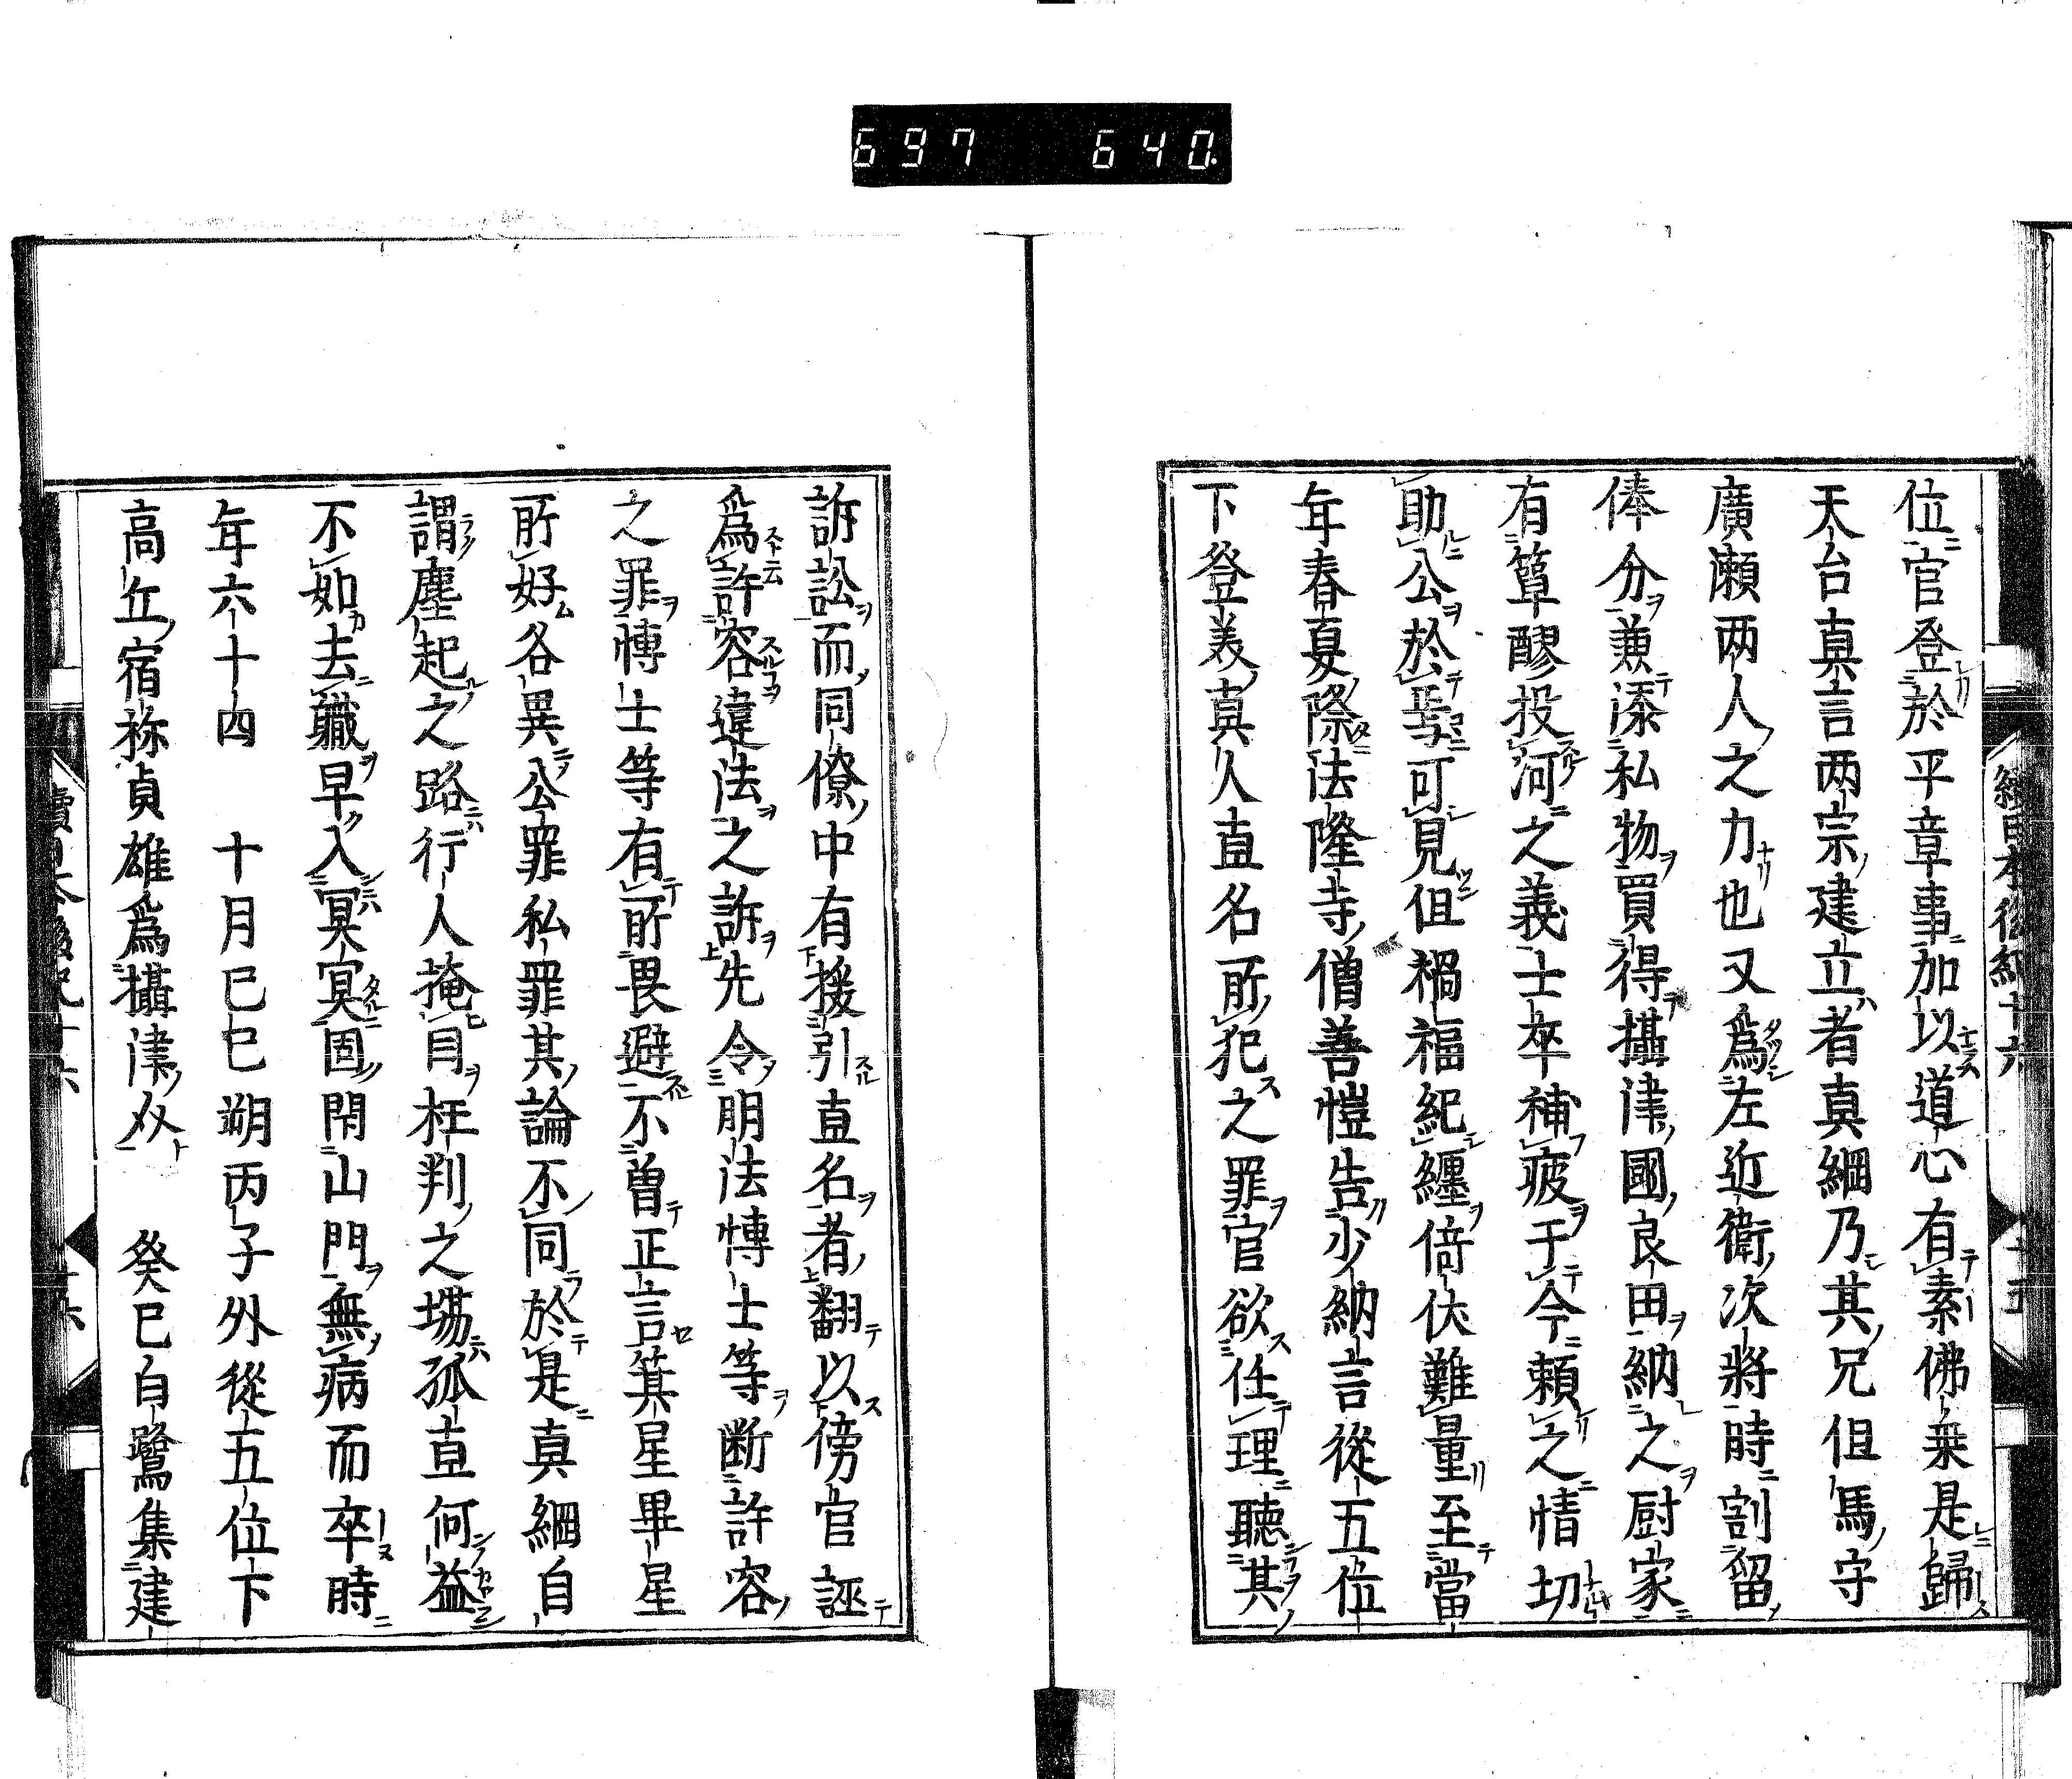 697 640.
位官登於平章事加以道心有素佛乗是歸
天台真言两宗建立者真綱乃其兄伹馬守
廣瀬两人之力也又爲左近衛次將時割留
俸分兼添私物買得攝津國良田納之厨家
有簞醪投河之義士卒補疲于今頼之情切
助公於焉可見伹禍福糺纒倚伏難量至當
年春夏際法隆寺僧善愷告少納言從五位
下登美真人直名所犯之罪官欲任理聽其
訴訟而同僚中有援引直名者翻以傍官誣
爲許容違法之訴先令明法愽士等断許容
之罪愽士等有所畏避不曽正言箕星畢星
所好各異公罪私罪其論不同於是真綱自
謂塵起之路行人掩目枉判之塲孤直何益
不如去職早入冥冥固閇山門無病而卒時
年六十四　十月巳巳朔丙子外從五位下
高丘宿祢貞雄爲攝津介　癸巳白鷺集建